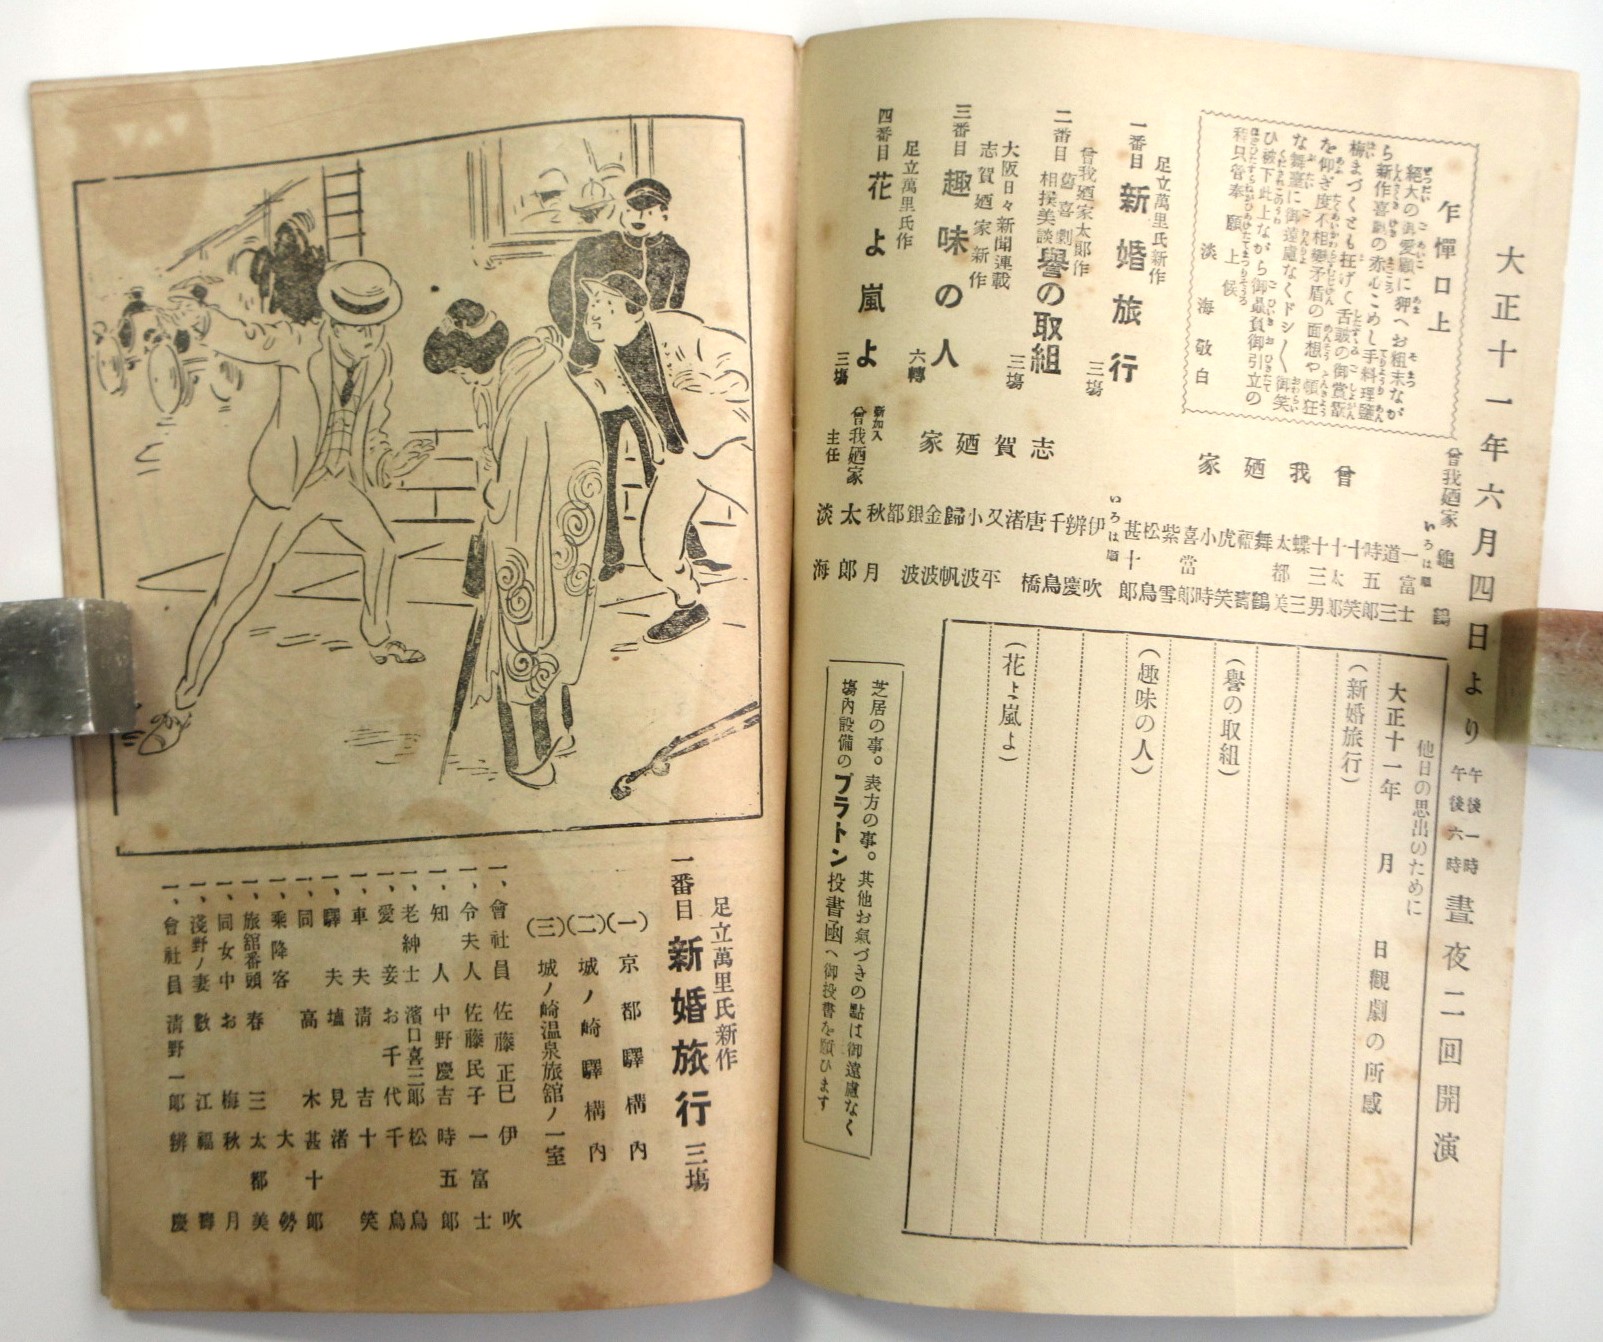 大正十一年六月四日より
午後一時
午後六時
晝夜二回開演
乍憚口上
絕大の御愛顧に狎へお粗末なが
ら新作喜劇の赤心こめし手料理鹽
梅まづくとも枉げて舌皷の御賞翫
を仰ぎ度不相變矛盾の面想や頓狂
な舞臺に御遠慮なくドシ〳〵御笑
ひ被下此上ながら御贔負御引立の
程只管奉願上候
淡海敬白
一番目
足立萬里氏新作
新婚旅行
三塲
二番目
曾我廼家太郞作
舊喜劇
相撲美談
譽の取組
三塲
三番目
大阪日々新聞連載
志賀廼家新作
趣味の人
六轉
四番目
足立萬里氏作
花よ嵐よ
三塲
曾我廼家龜鶴
曾我廼家
いろは順
一富士
道三
時五郞
十笑
十太郞
十三男
蝶三
太都美
舞鶴
福壽
虎笑
小時
喜當郞
紫雪
松鳥
甚十郞
志賀廼家
いろは順
伊吹
辨慶
千鳥
唐橋
渚
又平
小波
歸帆
金波
銀波
都
秋月
新加入
曾我廼家
太郞
主任
淡海
他日の思出のために
大正十一年 月 日觀劇の所感
(新婚旅行)
(譽の取組)
(趣味の人)
(花よ嵐よ)
芝居の事。表方の事。其他お氣づきの點は御遠慮なく
塲內設備のプラトン投書函へ御投書を願ひます
足立萬里氏新作
一番目 新婚旅行 三塲
(一)京都驛構內
(二)城ノ崎驛構內
(三)城ノ崎溫泉旅舘ノ一室
一、會社員 佐藤正巳 伊吹
一、令夫人 佐藤民子 一富士
一、知人 中野慶吉 時五郞
一、老紳士 濱口喜三郞 松鳥
一、愛妾 お千代 千鳥
一、車夫 淸吉 十笑
一、驛夫 塩見 渚
一、同 高木 甚十郞
一、乘降客 大勢
一、旅舘番頭 春三 太都美
一、同女中 お梅 秋月
一、淺野ノ妻 數江 福壽
一、會社員 淸野一郞 辨慶